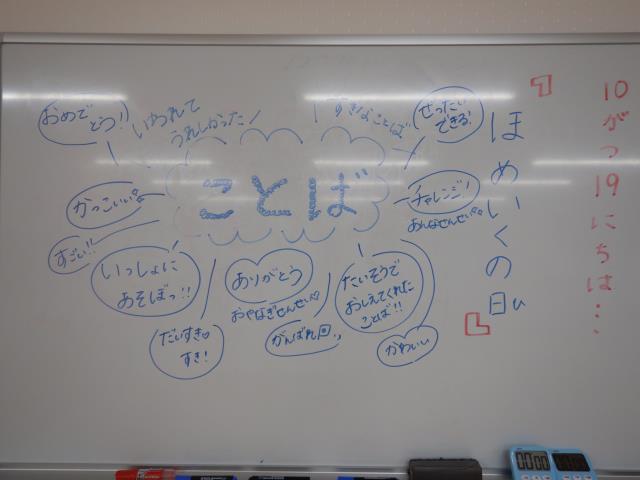 10がつ19にちは…
「ほめいくの日」
ことば
おめでとう!
いわれて
うれしかった!
すきなことば
ぜったい
できる!
かっこいい
すごい!!
チャレンジ!
おんなせんせい
いっしょに
あそぼっ!!
ありがとう
おやなぎせんせい♡
たいそうで
おしえてくれた
ことば!!
だいすき♡
すき!
がんばれ
かわいい
00:00